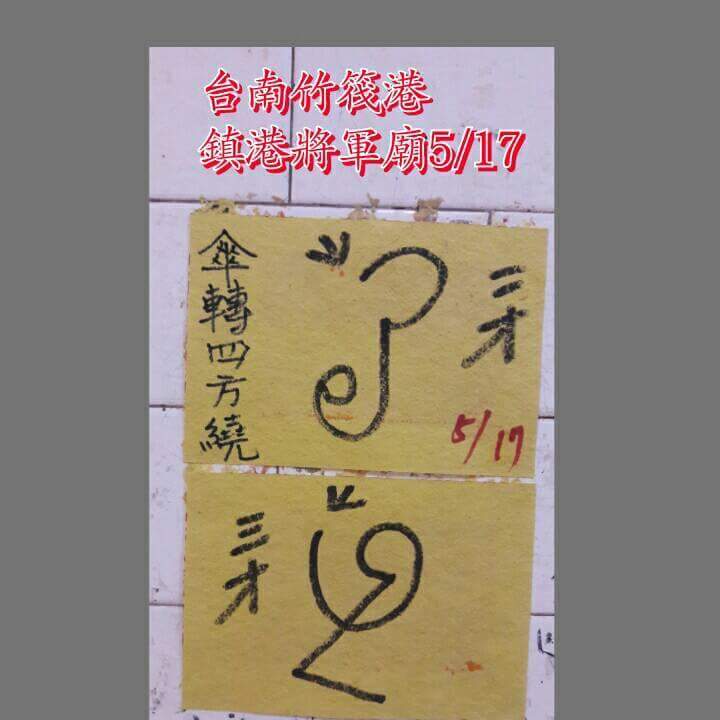 台南竹筏港
鎮港將軍廟5/17
傘轉四方繞
三才
5/17
三才